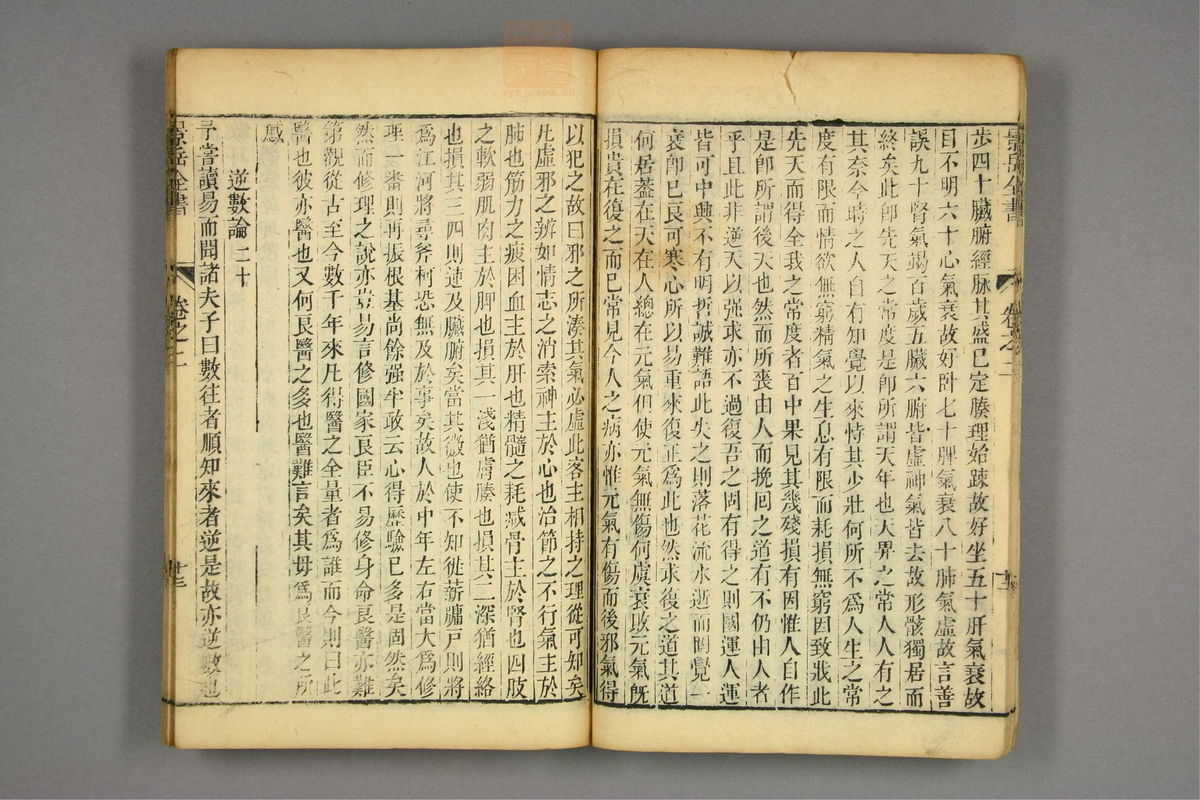 景岳全書
卷之二
步四十臟腑經脉其盛已定腠理始踈故好坐五十肝氣衰故
目不明六十心氣衰故好卧七十脾氣衰八十肺氣虛故言善
誤九十腎氣竭百歲五臟六腑皆虛神氣皆去故形骸獨居而
終矣此卽先天之常度是卽所謂天年也天畀之常人人有之
其奈今時之人自有知覺以來恃其少壯何所不爲人生之常
度有限而情欲無窮精氣之生息有限而耗損無窮因致戕此
先天而得全我之常度者百中果見其幾殘損有因惟人自作
是卽所謂後天也然而所喪由人而挽囘之道有不仍由人者
乎且此非逆天以强求亦不過復吾之固有得之則國運人運
皆可中興不有明哲誠難語此失之則落花流水逝而罔覺一
衰卽已良可寒心所以易重來復正爲此也然求復之道其道
何居葢在天在人總在元氣但使元氣無傷何虞衰敗元氣旣
損貴在復之而已常見今人之病亦惟元氣有傷而後邪氣得
以犯之故曰邪之所湊其氣必虛此客主相持之理從可知矣
凡虛邪之辨如情志之消索神主於心也治節之不行氣主於
肺也筋力之疲困血主於肝也精髓之耗减骨主於腎也四肢
之軟弱肌肉主於脾也損其一淺猶膚腠也損其二深猶經絡
也損其三四則連及臟腑矣當其微也使不知徙薪牖戶則將
爲江河將尋斧柯恐無及於事矣故人於中年左右當大爲修
理一番則再振根基尚餘强半敢云心得歷驗已多是固然矣
然而修理之說亦豈易言修國家良臣不易修身命良醫亦難
第觀從古至今數千年來凡得醫之全量者爲誰而今則曰此
醫也彼亦醫也又何良醫之多也醫難言矣其毋爲良醫之所
惑
逆數論 二十
予嘗讀易而聞諸夫子曰數往者順知來者逆是故亦逆數也
景岳全書
卷之二
十三